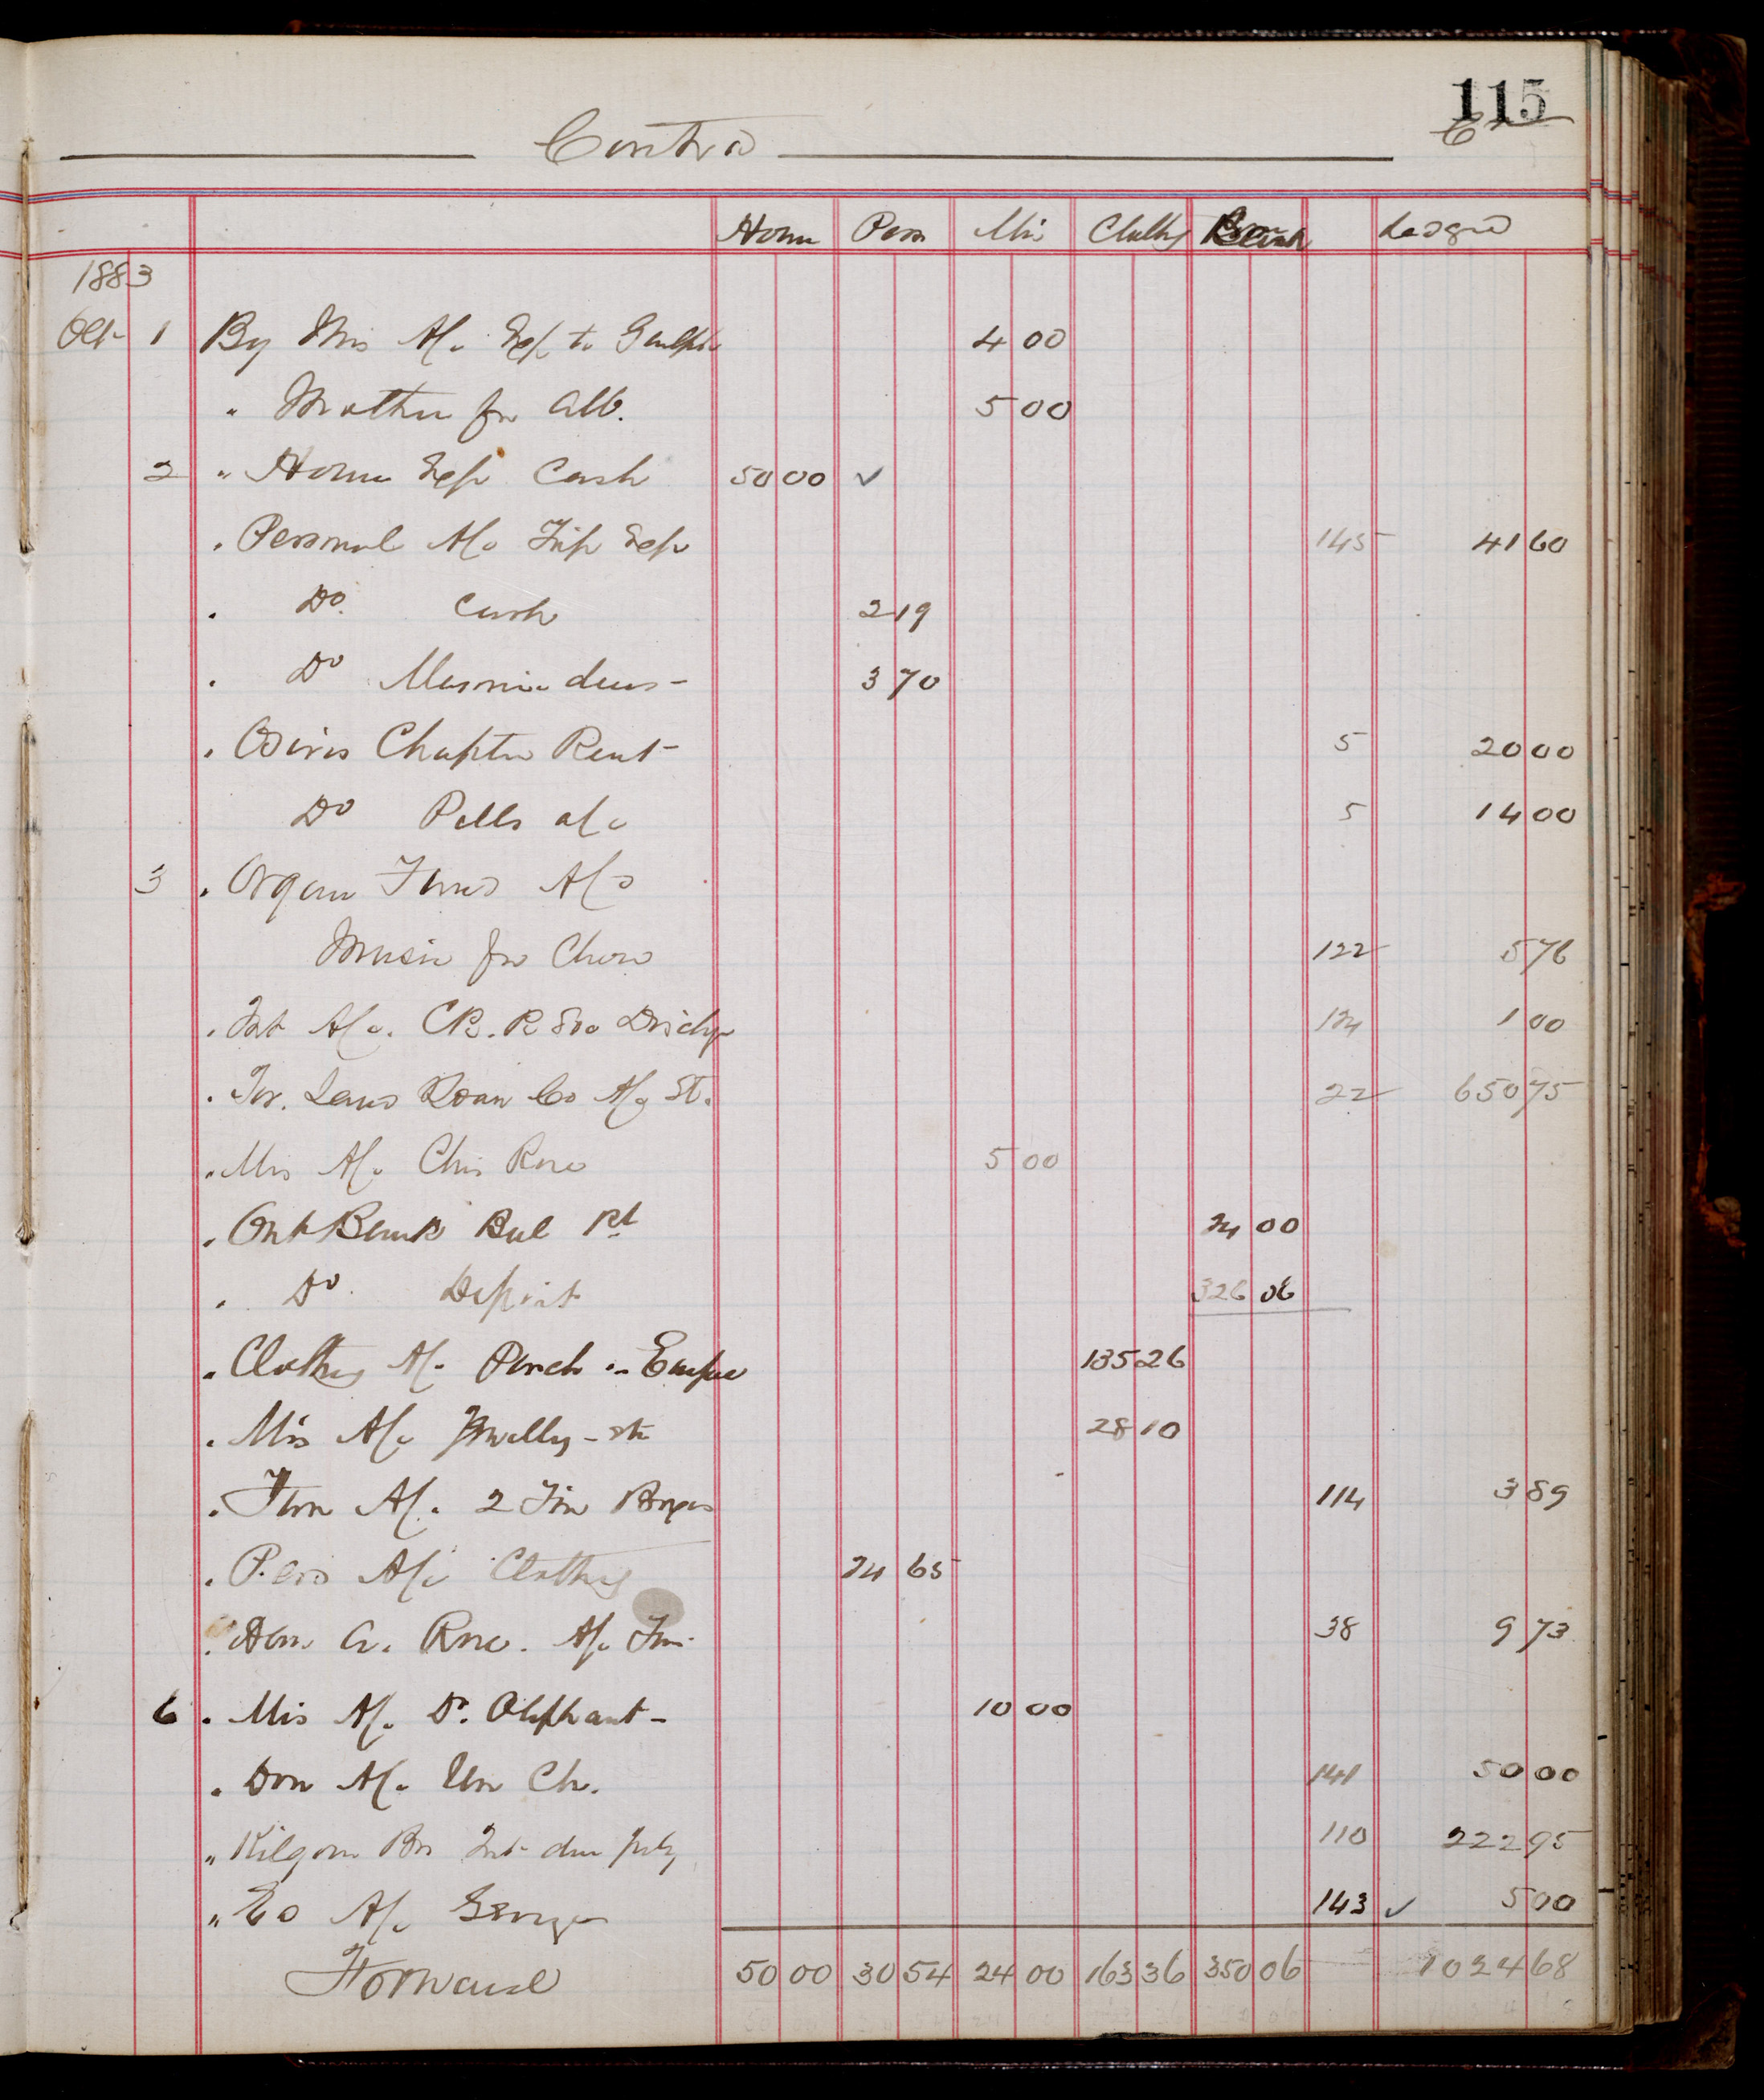 115
Contra Cr
House Pers Mis Clothg Bank Ledger
1883
Oct 1 By Mis A/c Exp to Guelph 4 00
" Mother for Alb. 5 00
2 " House Exp Cash 50 00 ✓
" Personal A/c Trip Exp 145 41 60
" Do. Cash 2 19
" Do Masonic dues - 3 70
" Osiris Chapter Rent - 5 20 00
Do Pells a/c 5 14 00
3 " Organ Fund A/c
Music for Choir 122 5 76
" Int A/c. CB. R 800 124 1 00
" Tor. Land Loan Co A/c St. 22 650 75
" Mis A/c Chis Rose 5 00
" Ont Bank Bal Rt 24 00
" Do. Deposit 326 06
" Clothg A/c Purch in Europe 135 26
" Mis A/c Jewellry - etc 28 10
" Furn A/c. 2 Tin Boxes 114 3 89
" Pers A/c Clothing 24 65
" A/c 38 9 73
6 " Mis A/c Dr. Oliphant - 10 00
" Don A/c Un Ch. 141 50 00
" Kilgour Bro Int due July 110 222 95
" Ed A/c George 143 ✓ 5 00
Forward 50 00 30 54 24 00 163 36 350 06 1024 68